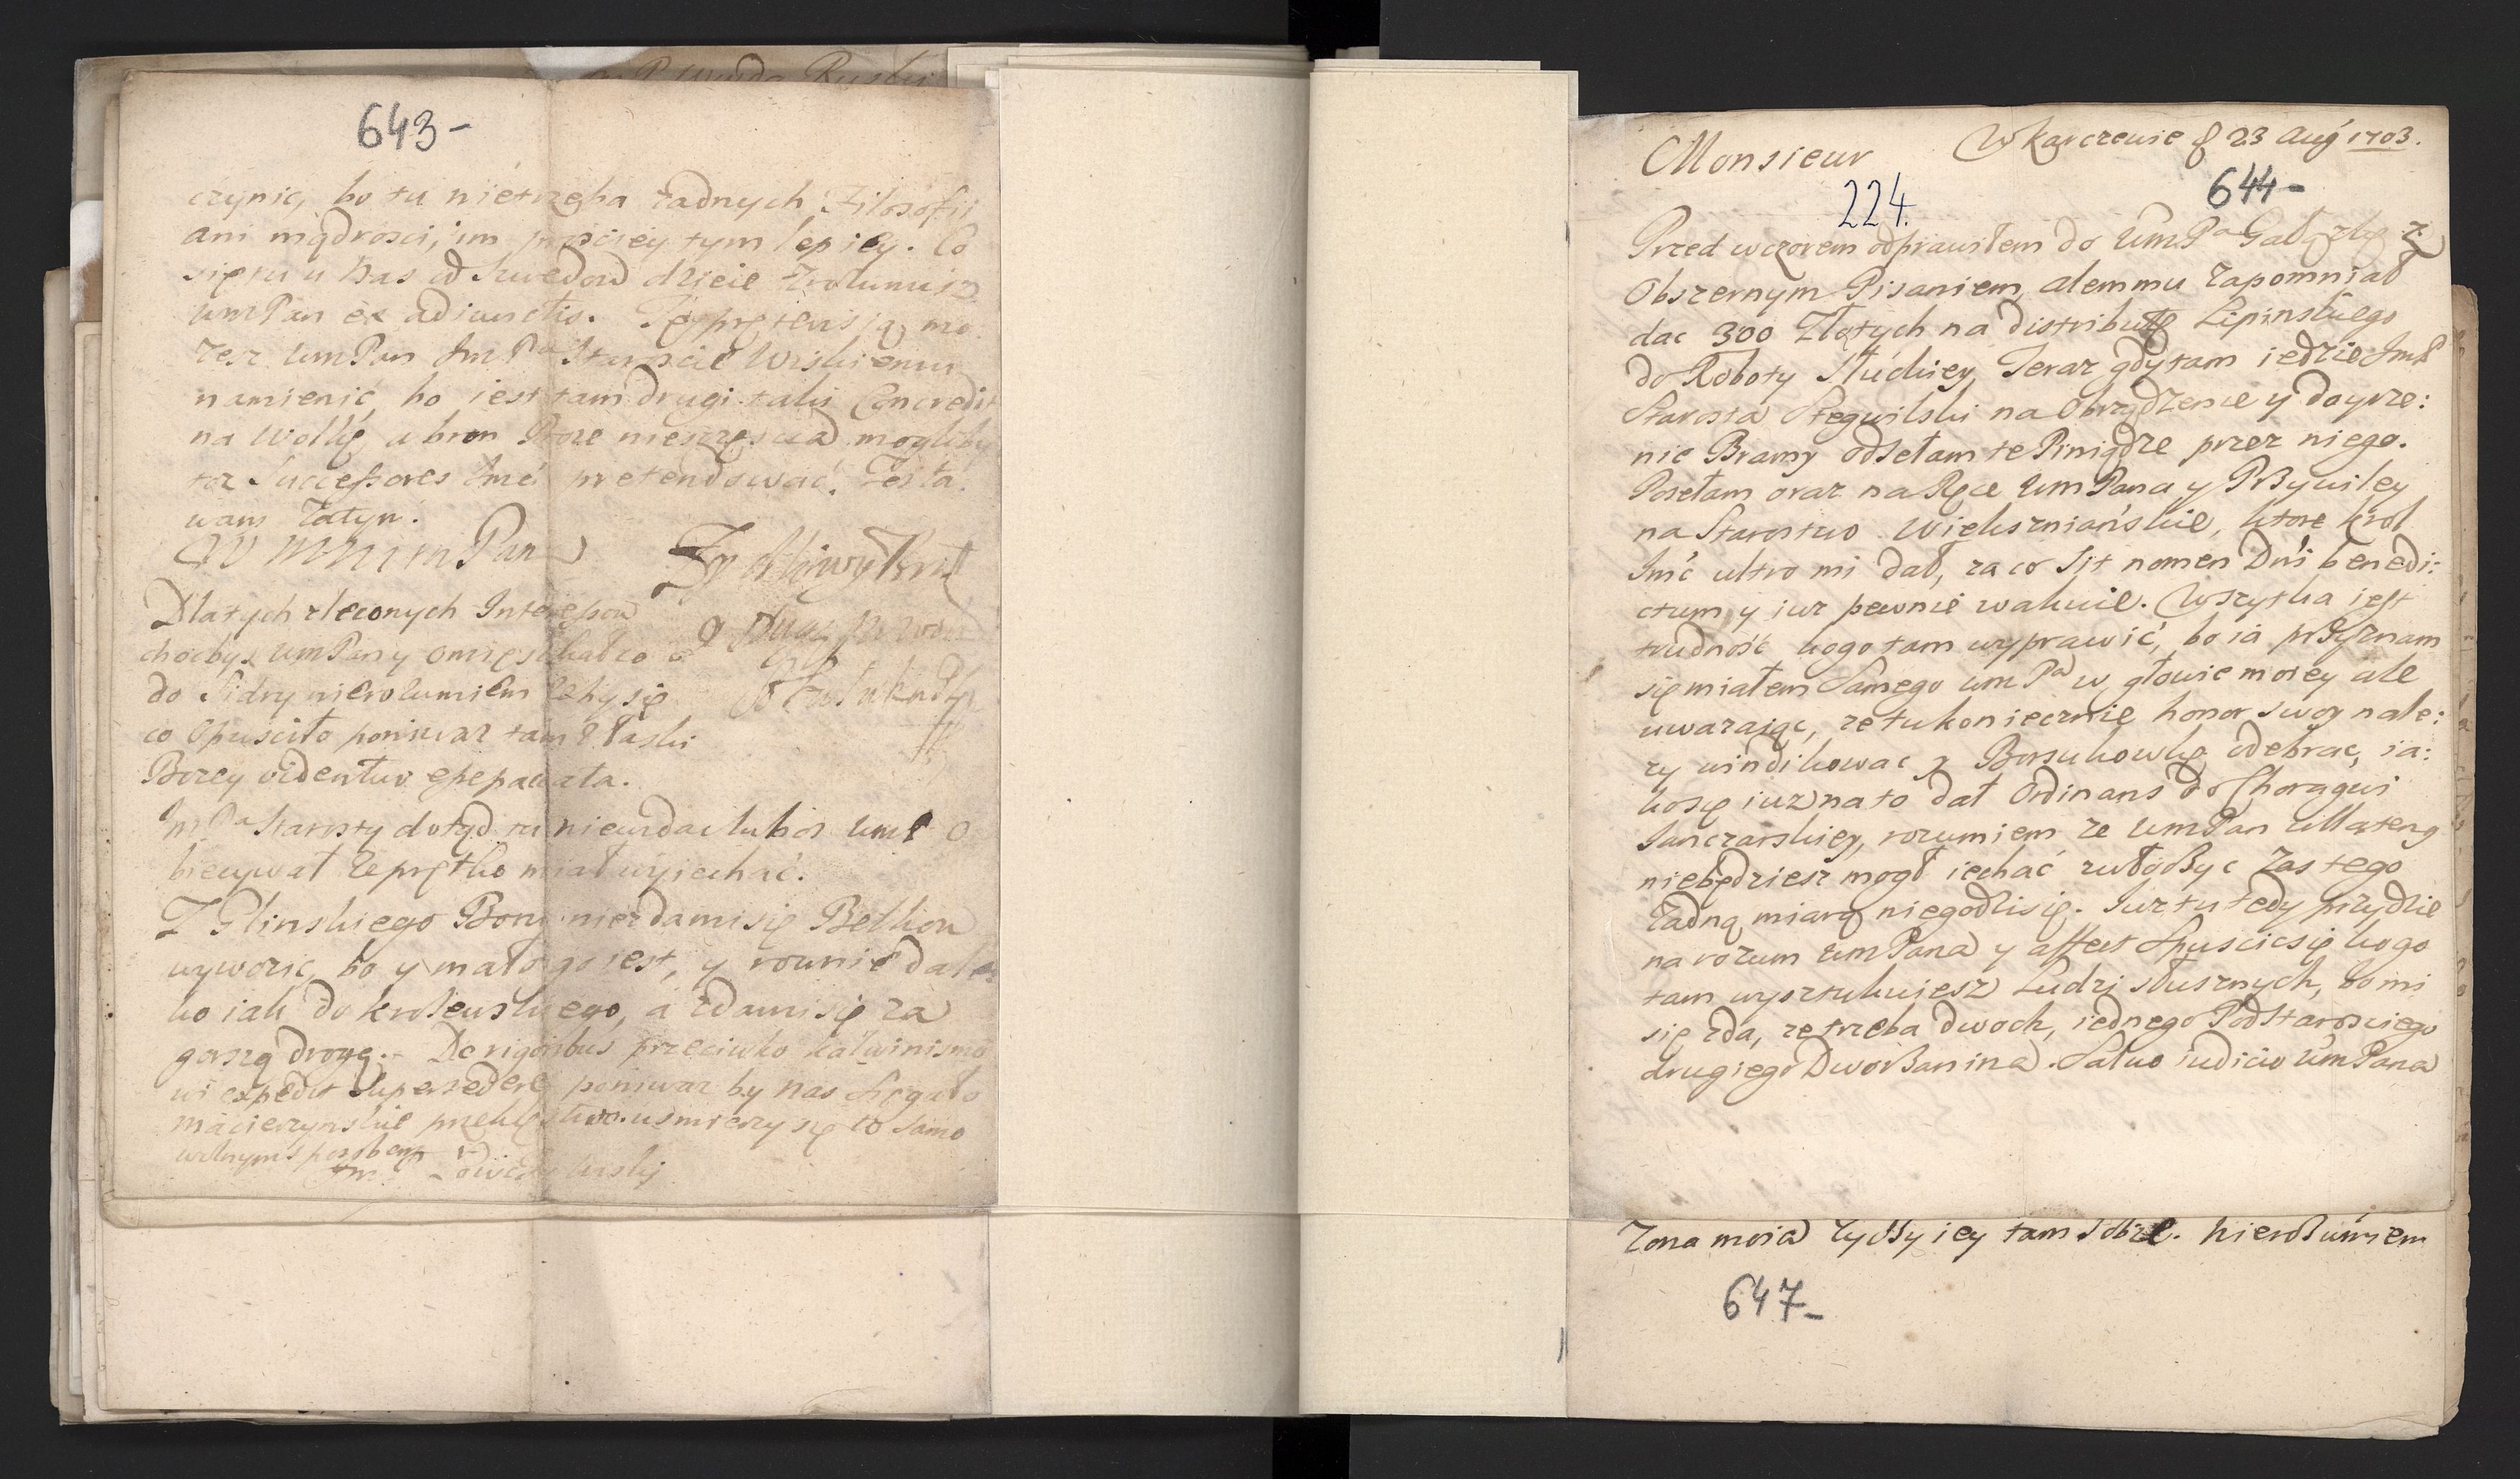 643-
czynic, bo tu nietrzeba zadnych Filosofii
ani mądrosci, im prosciey tym lepiey. Co
się tu u Nas od Szwedow dzieie zrozumiesz
UmPan ex adiunctis. Tę pretensją mo
zesz UmPan ImPa Staroscie Wiskiemu
namienić, bo iest tam drugi talis
na Wolkę, a bron Boze nieszczęscia mogliby
tez Successores Imći pretendować. Zosta
wam zatym.
WMMMPan
Zyczliwy Brat
Dla tych zleconych Interessow
chocbys UmPan y omieszkał co
do Sidry nierozumiem zeby się
co opuscilo poniewaz tam z łaski
Bozey videntur
ImPa Starosty dotąd tu niewidac lubos UmP O
biecywał ze prętko miał wyiechać.
Z Glinskiego Boru niezda mi się Belkow
wywozic, bo y mało go iest, y rownie dale
ko iak do krolewskiego, a zda mi się za
gorszą drogą. De rigoribus przeciwko kalwinismo
wi expedit supersedere poniewaz by nas sięgało
macierzynskie usmierzy się to samo
wolnym sposobem
Monsieur
W Karczewie d 23 Aug 1703.
224.
644-
Przed wczorem odprawiłem do UmPa Gałązkę z
Obszernym Pisaniem, alem mu zapomniał
dac 300 Złotych na distributę Lipinskiego
do Roboty Sludkiey, Teraz gdy tam iedzie ImP
Starosta Stegwilski na Obrządzenie y doyrze:
nie Bramy odsełam te Piniądze przez niego.
Posełam oraz na Ręce UmPana y Przywiley
na Starostwo Wiekszniańskie, ktore krol
Imć ultro mi dał, za co Sit nomen Dni benedi:
ctum y iuz pewnie wakuie. Wszytka iest
trudność kogo tam wyprawić, bo ia przyznam
się miałem Samego UmPa w głowie moiey ale
uwazaiąc, ze tu koniecznie honor swoy nale:
zy windikowac y Borsukowkę odebrac, ia:
kosię iuz na to dał Ordinans do Chorągwi
Janczarskiey, rozumiem ze UmPan
niebędziesz mogł iechać zas tego
zadną miarą niegodzi się. Iuz tu tedy przydzie
na rozum UmPana y affect spuscic się kogo
tam wysztukuiesz Ludzi słusznych, bo mi
się zda, ze trzeba dwoch, iednego Podstarosciego
drugiego Dworzanina. Salvo iudicio UmPana
Zona moia zyczy iey tam dobrze. Nierozumiem
647-